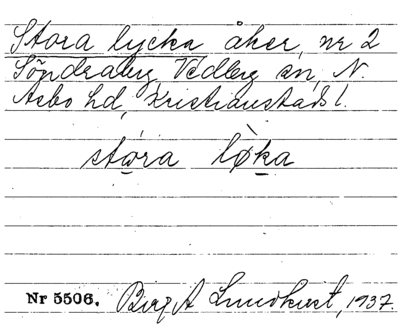 Stora lycka åker, nr 2
Söndraby, Vedby sn, N.
Åsbo hd, Kristianstads l.
stóra lø̀ka
Nr 5506. Birgit Lundkvist, 1937.